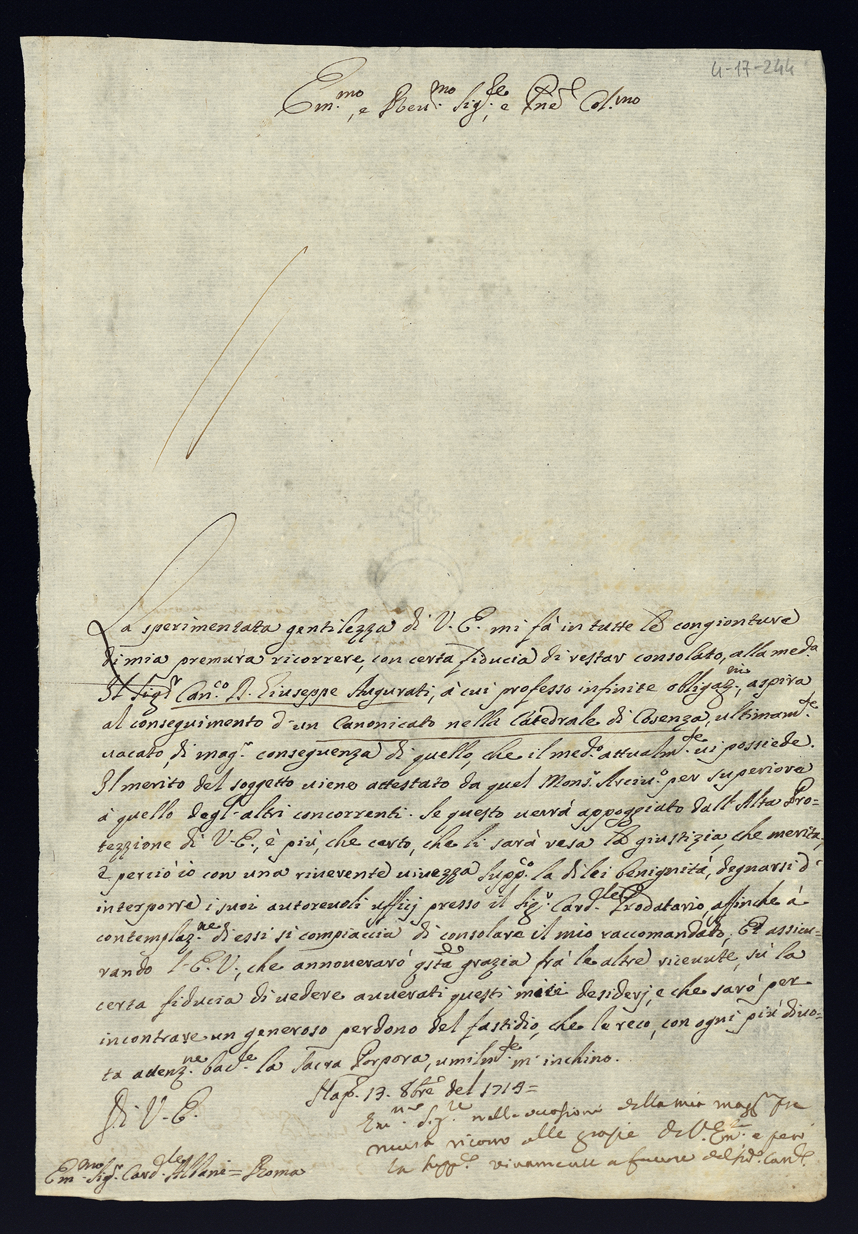 4-17-244
Em.mo, e Reu.mo Sig.re, e Pne Col.mo
La sperimentata gentilezza di V. E. mi fà in tutte le congionture
di mia premura ricorrere, con certa fiducia di restar consolato, alla med.a
Il Sig.r Can.co D. Giuseppe Augurati, à cui professo infinite obligaz.ni, aspira
al conseguimento d'un Canonicato nella Catedrale di Cosenza, ultimam.te
vacato di mag.r conseguenza di quello, che il med.o attualm.te vi possiede.
Il merito del soggetto viene attestato da quel Mons.r Arciu.o per superiore
à quello degl'altri concorrenti. Se questo verrà appoggiato dall'Alta Pro=
tezzione di V. E., è più, che certo, che li sarà resa la giustizia, che merita,
e perciò io con una riverente vivezza supp.co la di lei benignità, degnarsi d'
interporre i suoi autorevoli ufficij presso il Sig.r Card.le Prodatario, affinche à
contemplaz.ne di essi si compiaccia di consolare il mio raccomandato; Et assicu=
rando l'E. V., che annoverarò q.sta grazia frà le altre ricevute, sù la
certa fiducia di vedere avverati questi miei desiderj, e che sarò per
incontrare un generoso perdono del fastidio, che le reco, con ogni più divo=
ta attenz.ne bac.le la Sacra Porpora, umilm.te m'inchino.
Nap. 13. 8bre del 1714=
Di V. E.
Em.mo Sig.re nelle occasioni della mia magg.r pre
mura ricorro alle grazie di V. Em. e però
la supp.co vivamente a favore del sud.o Can.co
Em.mo Sig.r Card.le Albani = Roma